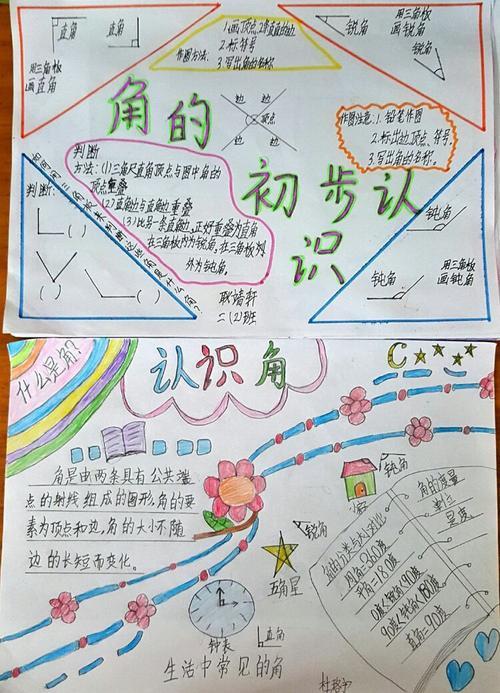 直角
直角
用三角板
画直角
作图方法:
1.画顶点,
2.标符号
3.写出角的名称
锐角
用三角板
画锐角
锐角
角的
初步认
识
边
边
顶点
边
边
作图注意:1.铅笔作图
2.标出边、顶点、符号。
3.写出角的名称。
判断
方法:(1)三角尺直角顶点与图中角的
顶点重叠
(2)直角边与直角边重叠
(3)比另一条直角边,正好重叠为直角
在三角板内为锐角,在三角板外
外为钝角。
判断:
( )
( )
( )
二(2)班
钝角
用三角板
画钝角
钝角
什么是角?
认识角
角是由两条具有公共端
点的射线组成的图形,角的要
素为顶点和边,角的大小不随
边的长短而变化。
钝角
锐角
五角星
钟表
直角
生活中常见的角
角的度量
单位
是度
角的分类与大小对比
周角=360度
平角=180度
0度<锐角<90度
90度<钝角<180度
直角=90度